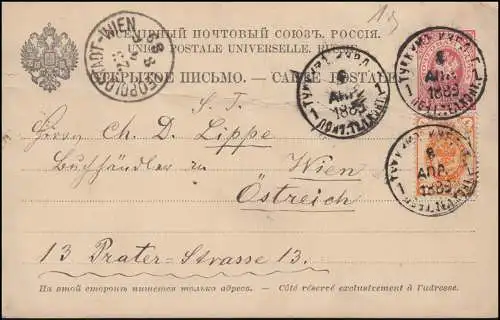 ВСЕМІРНЫЙ ПОЧТОВЫЙ СОЮЗЪ. РОССІЯ.
UNION POSTALE UNIVERSELLE. RUSSIE
ОТКРЫТОЕ ПИСЬМО. — CARTE POSTALE
LEOPOLDSTADT-WIEN
S. T.
Herrn Ch. D. Lippe
Buchhändler
Wien
Östreich
13 Prater-Strasse 13.
На этой сторонѣ пишется только адресъ. — Côté réservé exclusivement à l'adresse.
8
АПР.
1889
8
АПР.
1889
8
АПР.
1889